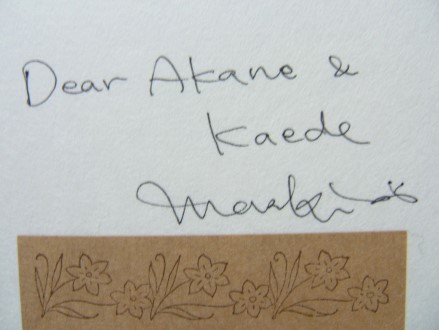 Dear Akane &
Kaede